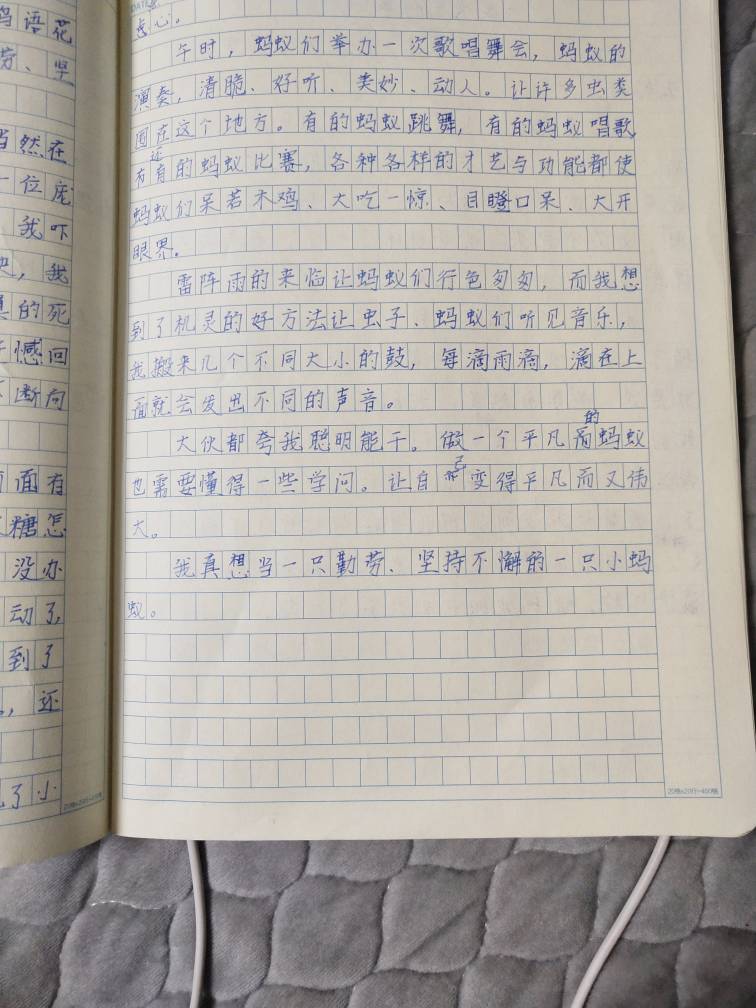 鸟语花
劳、坚
当然在
一位庞
我吓
我
真的死
憾回
不断向
面有
糖怎
没办
动了,
到了
,还
了小
点心。
午时,蚂蚁们举办一次歌唱舞会,蚂蚁的
演奏,清脆、好听、美妙、动人。让许多虫类
围在这个地方。有的蚂蚁跳舞,有的蚂蚁唱歌
还有的蚂蚁比赛,各种各样的才艺与功能都使
蚂蚁们呆若木鸡、大吃一惊、目瞪口呆、大开
眼界。
雷阵雨的来临让蚂蚁们行色匆匆,而我想
到了机灵的好方法让虫子、蚂蚁们听见音乐,
我搬来几个不同大小的鼓,每滴雨滴,滴在上
面就会发出不同的声音。
大伙都夸我聪明能干。做一个平凡的蚂蚁
也需要懂得一些学问。让自己变得平凡而又伟
大。
我真想当一只勤劳、坚持不懈的一只小蚂
蚁。
20格×20行=400格
20格×20行=400格